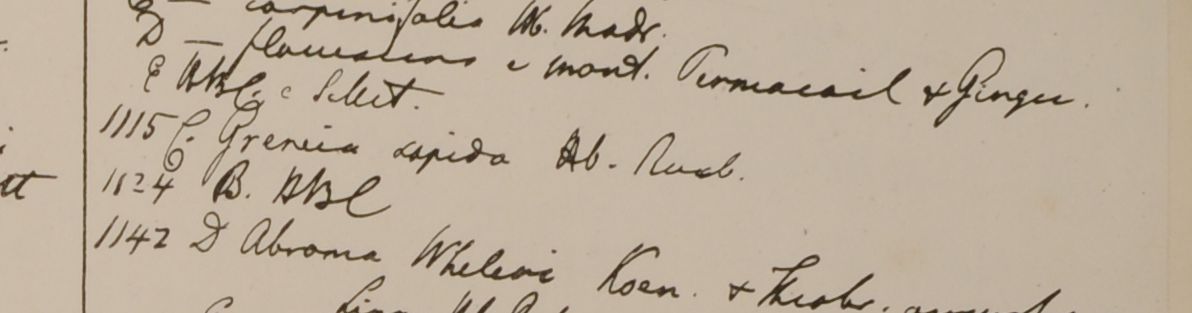 D — carpinifolia Hb. Madr.
D — flavescens e mont. Permacoil & Gingee.
E HBC. e Silhet.
1115 C. Grewia sapida Hb. Roxb.
D
1124 B. HBC
1142 D Abroma Wheleri Koen. &
Linn. Hb.